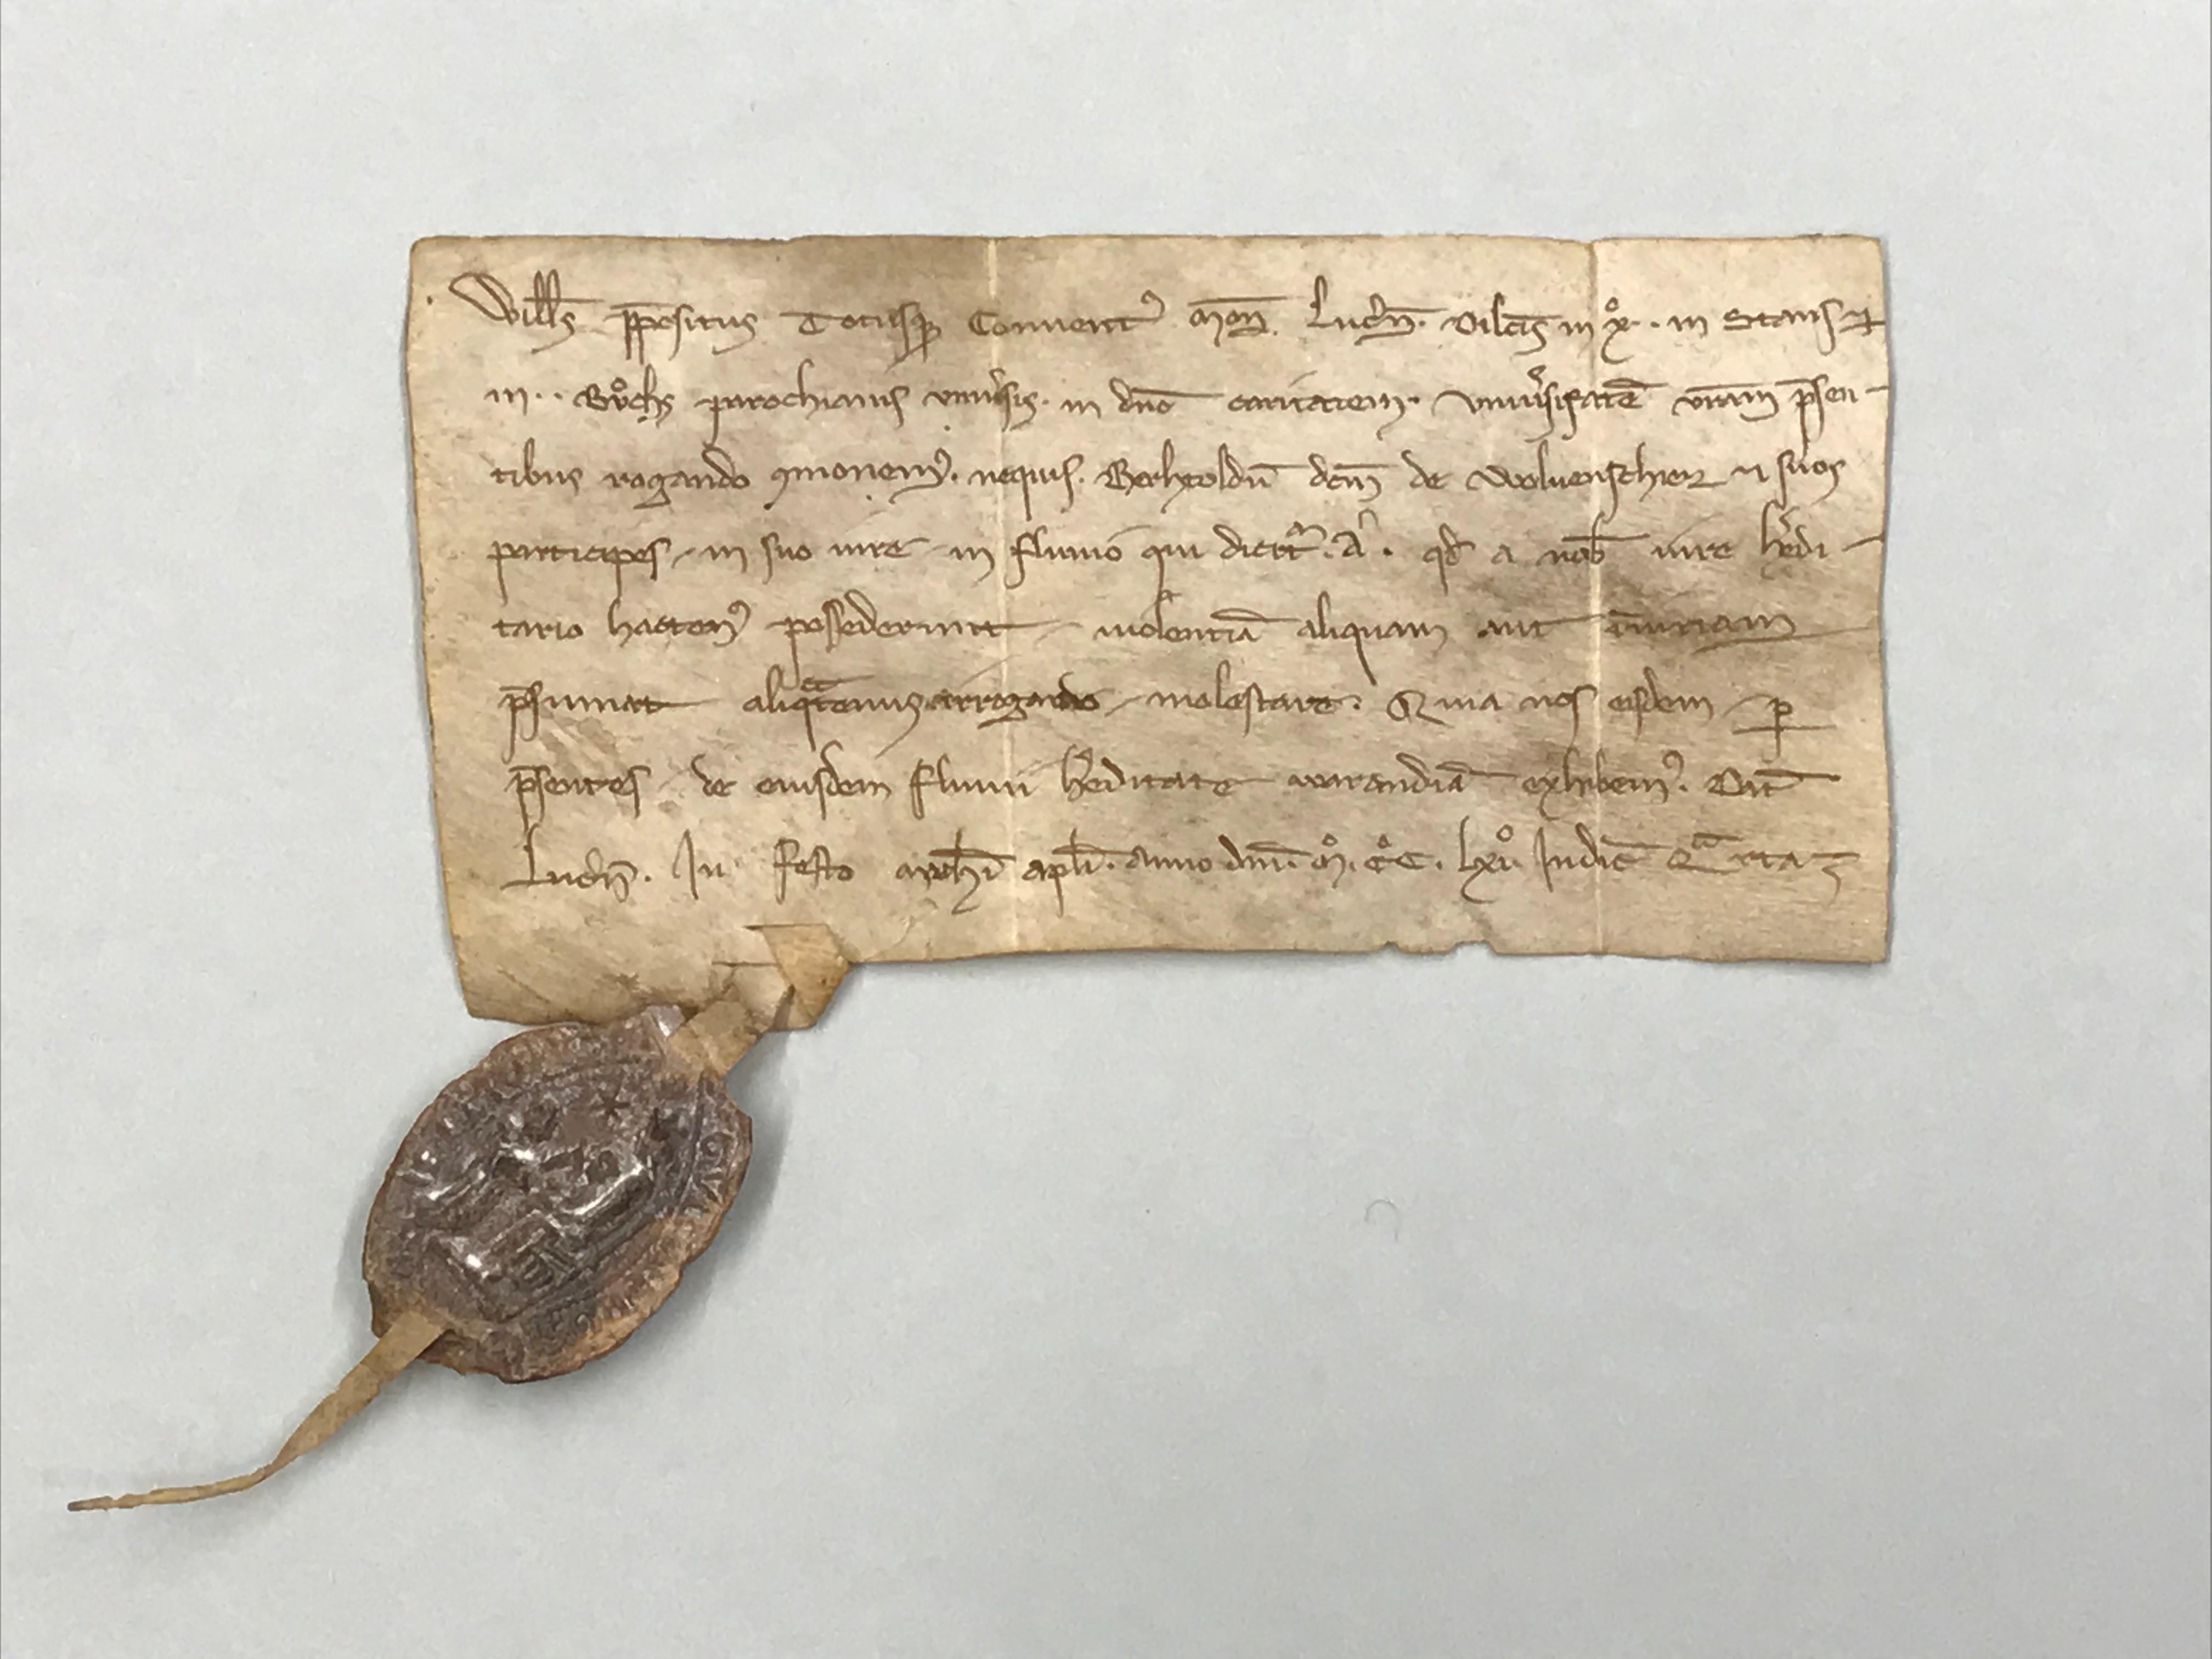 Wills̄ p̄positus Totusq; Conuent᾽ mon̄. Lucn̄. dilc̄is in xͦ. in Stans ⁊
in . . Bůchs parochianis vniu̾sis. in dn̄o caritatem. Vniu̾sitatē vr̄am p̄sen-
tibus rogando ꝯmonem᾽. nequis. Berhtoldū dc̄m de Woluenschiez ⁊ suos
participes in suo iure in fluuio qui dicit᾽. A. qd̄ a nob̄ iure h̾edi-
tario hacten᾽ possederunt violentiā aliquam aut iniuriam
p̄sumat aliqͣtenus irrogando molestare. Quia nos eisdem ꝑ
p̄sentes de eiusdem fluuii h̾editate warandiā exhibem᾽. Dat̄
Lucn̄. In festo Mathi̅ apl̄i. Anno dn̄i. mͦ. cͦc. lxiͦ. Indic̄ Qͣrta